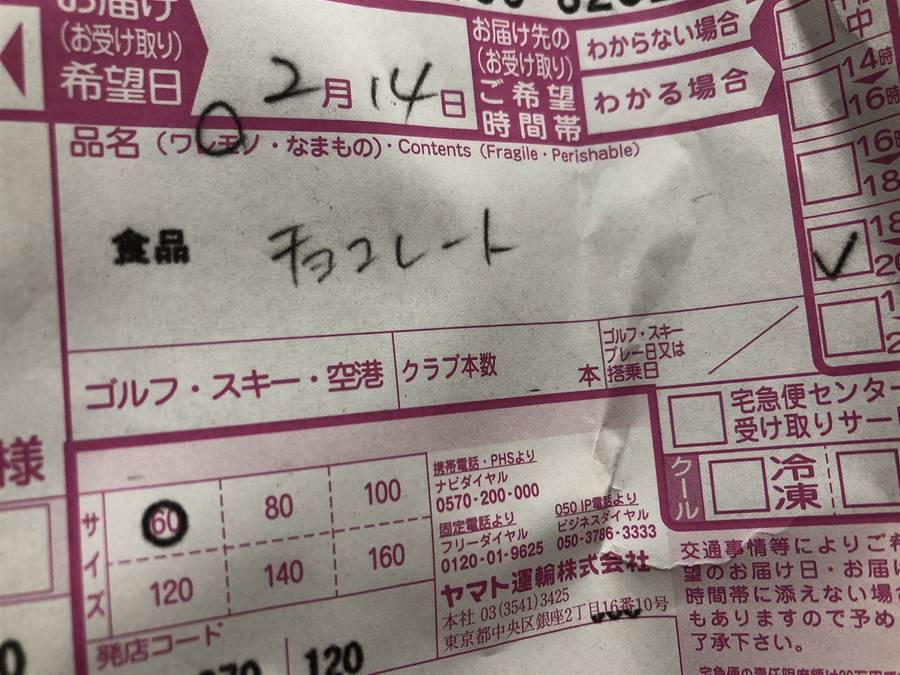 お届け
(お受け取り)
希望日
2月14日
お届け先の
(お受け取り)
ご希望
時間帯
わからない場合
わかる場合
中
14時
16時
16時
18
18
20
品名 (ワレモノ・なまもの)・Contents (Fragile・Perishable)
食品 チョコレート
ゴルフ・スキー・空港
クラブ本数
本
ゴルフ・スキー
プレー日又は
搭乗日
宅急便センター
受け取りサー
クール
冷凍
様
サイズ
60 80 100
120 140 160
携帯電話・PHSより
ナビダイヤル
0570-200-000
固定電話より
フリーダイヤル
0120-01-9625
050 IP電話より
ビジネスダイヤル
050-3786-3333
ヤマト運輸株式会社
本社 03(3541)3425
東京都中央区銀座2丁目16番10号
発店コード
120
交通事情等によりご希
望のお届け日・お届け
時間帯に添えない場合
もありますので予め
了承下さい。